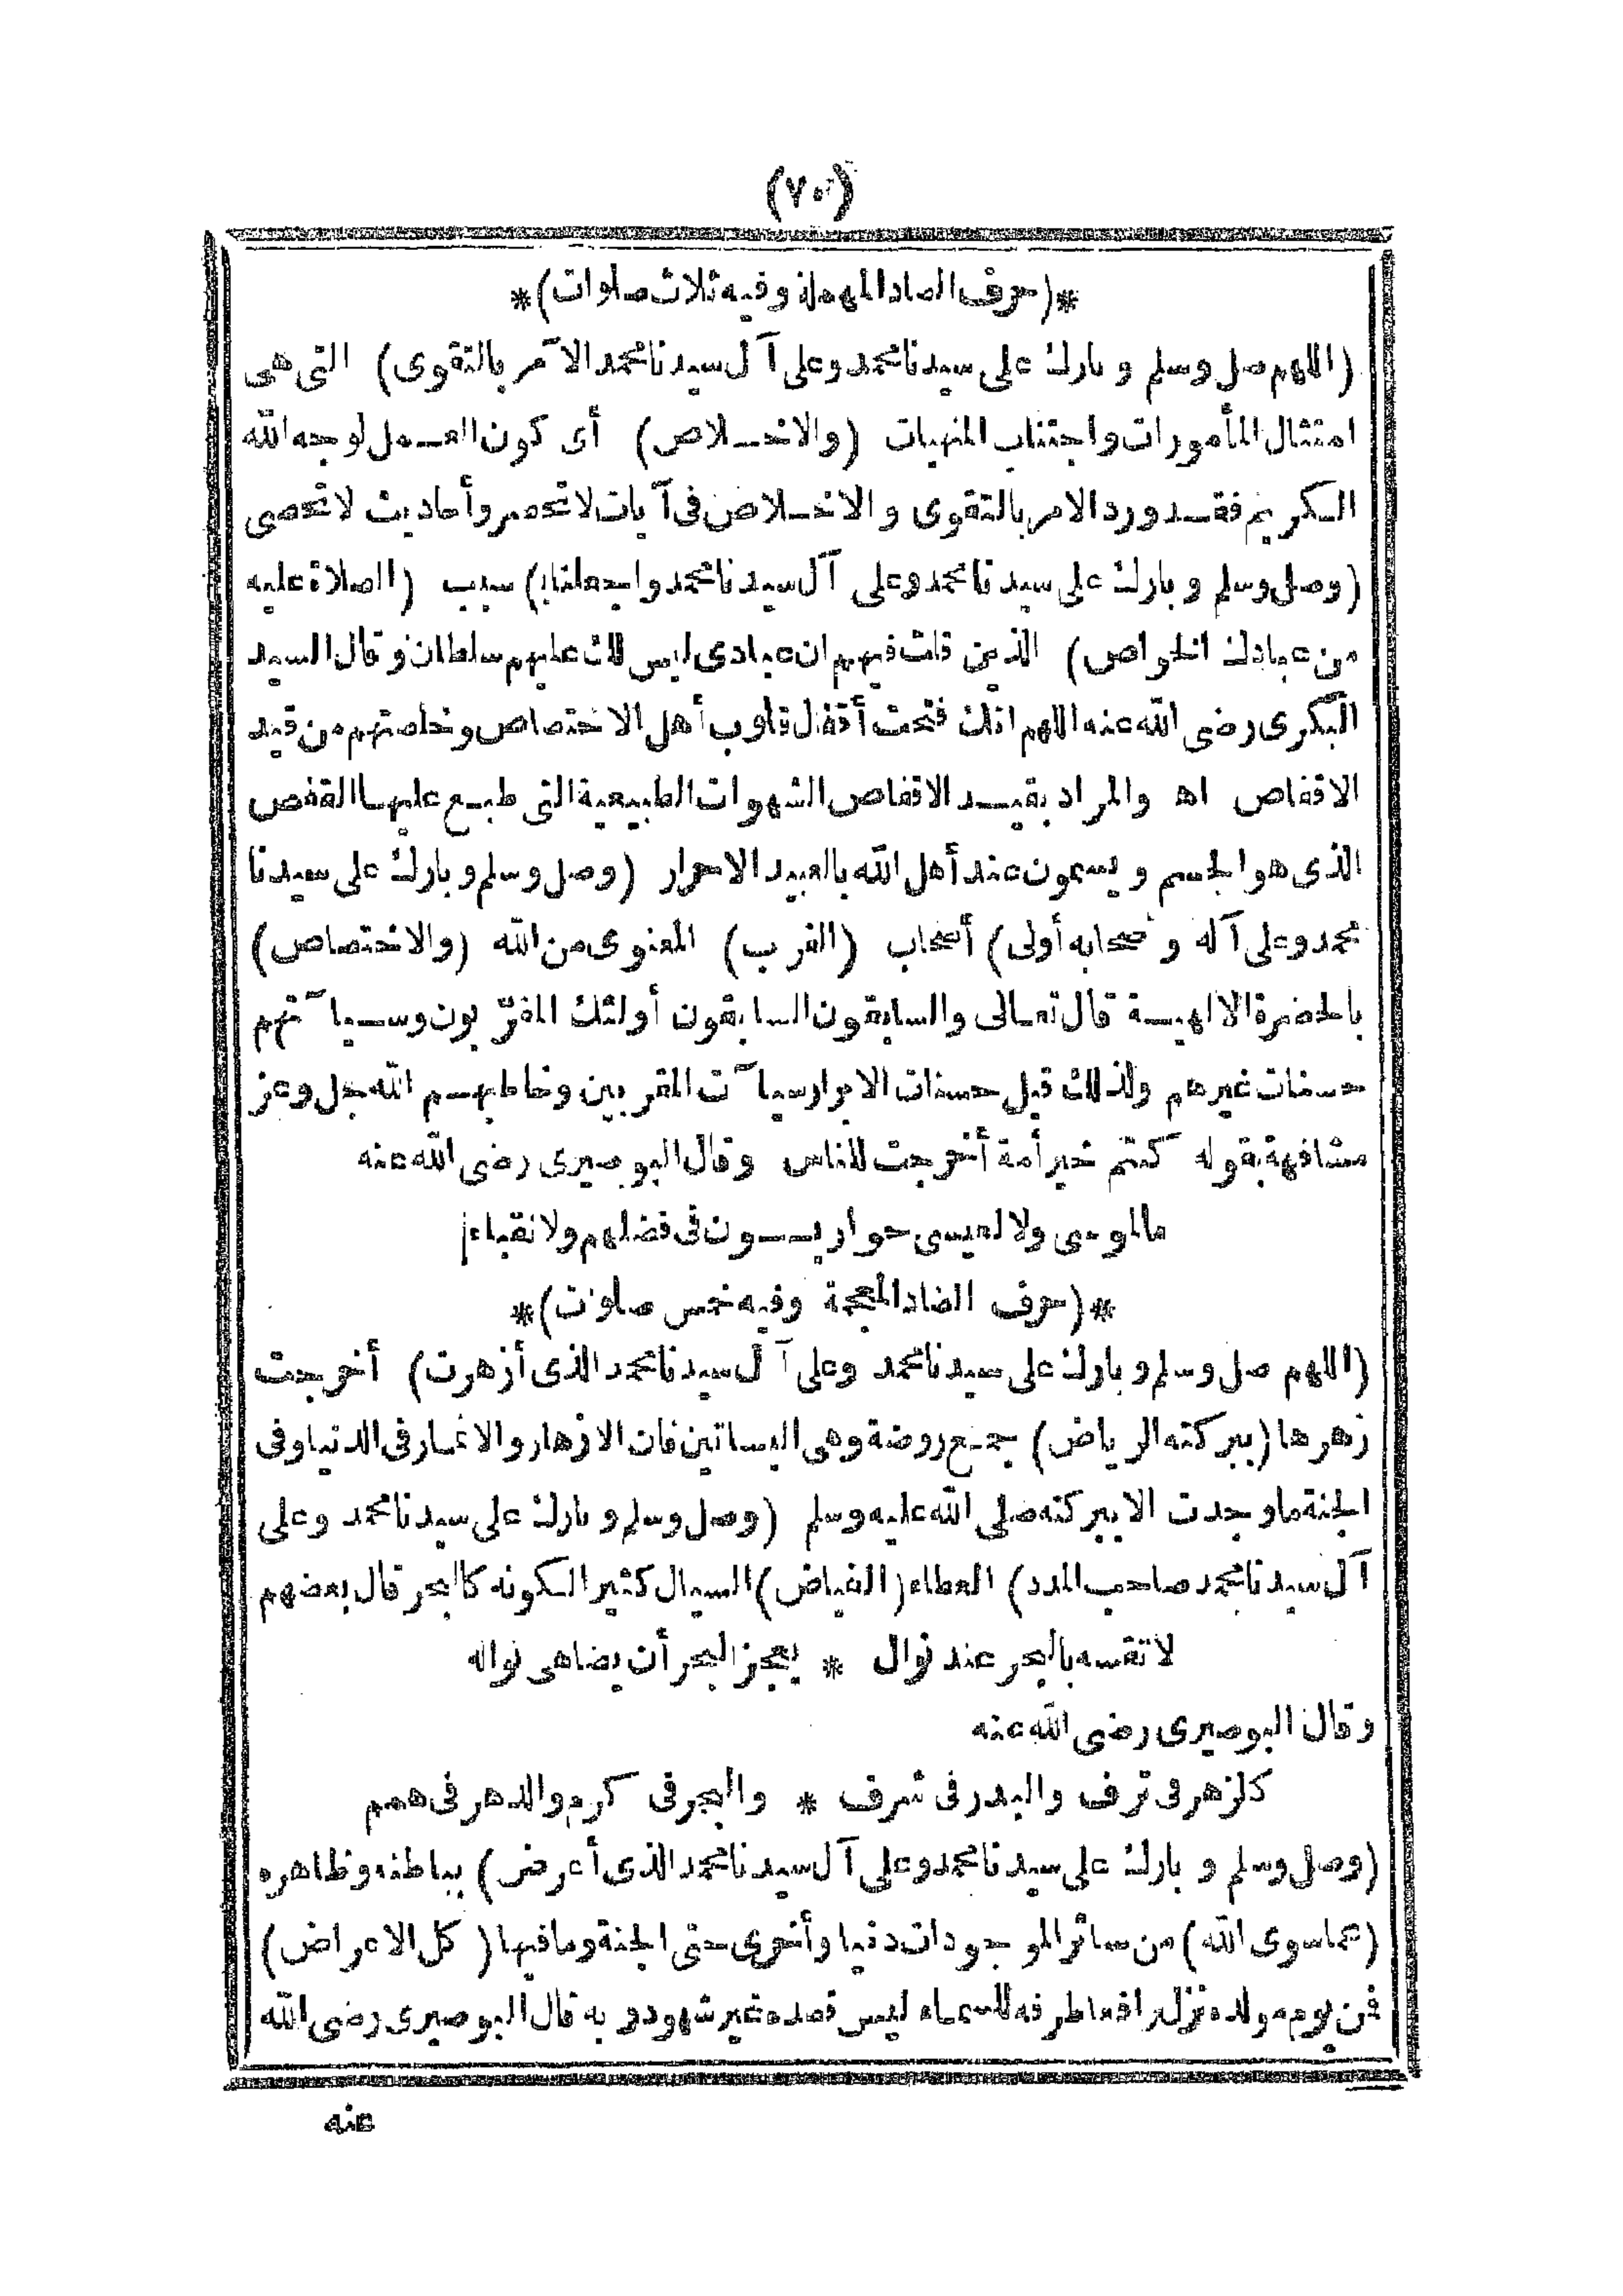 (٧٠)
*(حرف الصاد المهملة وفيه ثلاث صلوات)*
(اللهم صل وسلم وبارك على سيدنا محمد وعلى آل سيدنا محمد الآمر بالتقوى) التى هى
امتثال المأمورات واجتناب المنهيات (والاخــلاص) أى كون العــمل لوجه الله
الكريم فقــد ورد الامر بالتقوى والاخــلاص فى آيات لا تحصر وأحاديث لا تحصى
(وصل وسلم وبارك على سيدنا محمد وعلى آل سيدنا محمد واجعلنا) سبب (الصلاة عليه
من عبادك الخواص) الذين قلت فيهم ان عبادى ليس لك عليهم سلطان وقال السيد
البكرى رضى الله عنه اللهم انك فتحت أقفال قلوب أهل الاختصاص وخلصتهم من قيد
الاقفاص اه والمراد بقيــد الاقفاص الشهوات الطبيعية التى طبــع عليها القفص
الذى هو الجسم ويسمون عند أهل الله بالعبيد الاحرار (وصل وسلم وبارك على سيدنا
محمد وعلى آله وصحابه أولى) أصحاب (القرب) المعنوى من الله (والاختصاص)
بالحضرة الالهيــة قال تعالى والسابقون السابقون أولئك المقرّبون وسيآتهم
حسنات غيرهم ولذلك قيل حسنات الابرار سيآت المقربين وخاطبهــم الله جل وعز
مشافهة بقوله كنتم خير أمة أخرجت للناس وقال البوصيرى رضى الله عنه
ما لموسى ولا لعيسى حواريــون فى فضلهم ولا نقباء
*(حرف الضاد المعجمة وفيه خمس صلوات)*
(اللهم صل وسلم وبارك على سيدنا محمد وعلى آل سيدنا محمد الذى أزهرت) أخرجت
زهرها (ببركته الرياض) جمــع روضة وهى البساتين فان الازهار والاثمار فى الدنيا وفى
الجنة ما وجدت الا ببركته صلى الله عليه وسلم (وصل وسلم وبارك على سيدنا محمد وعلى
آل سيدنا محمد صاحب المدد) العطاء (الفياض) السيال كثير السكونه كالبحر قال بعضهم
لا تقسه بالبحر عند نوال * يعجز البحر أن يضاهى نواله
وقال البوصيرى رضى الله عنه
كالزهر فى ترف والبدر فى شرف * والبحر فى كرم والدهر فى همم
(وصل وسلم وبارك على سيدنا محمد وعلى آل سيدنا محمد الذى أعرض) بباطنه وظاهره
(عما سوى الله) من سائر الموجودات دنيا وأخرى حتى الجنة وما فيها (كل الاعراض)
فمن يوم مولده نزل رافعا طرفه للسماء ليس قصده غير شهود ربه قال البوصيرى رضى الله
عنه